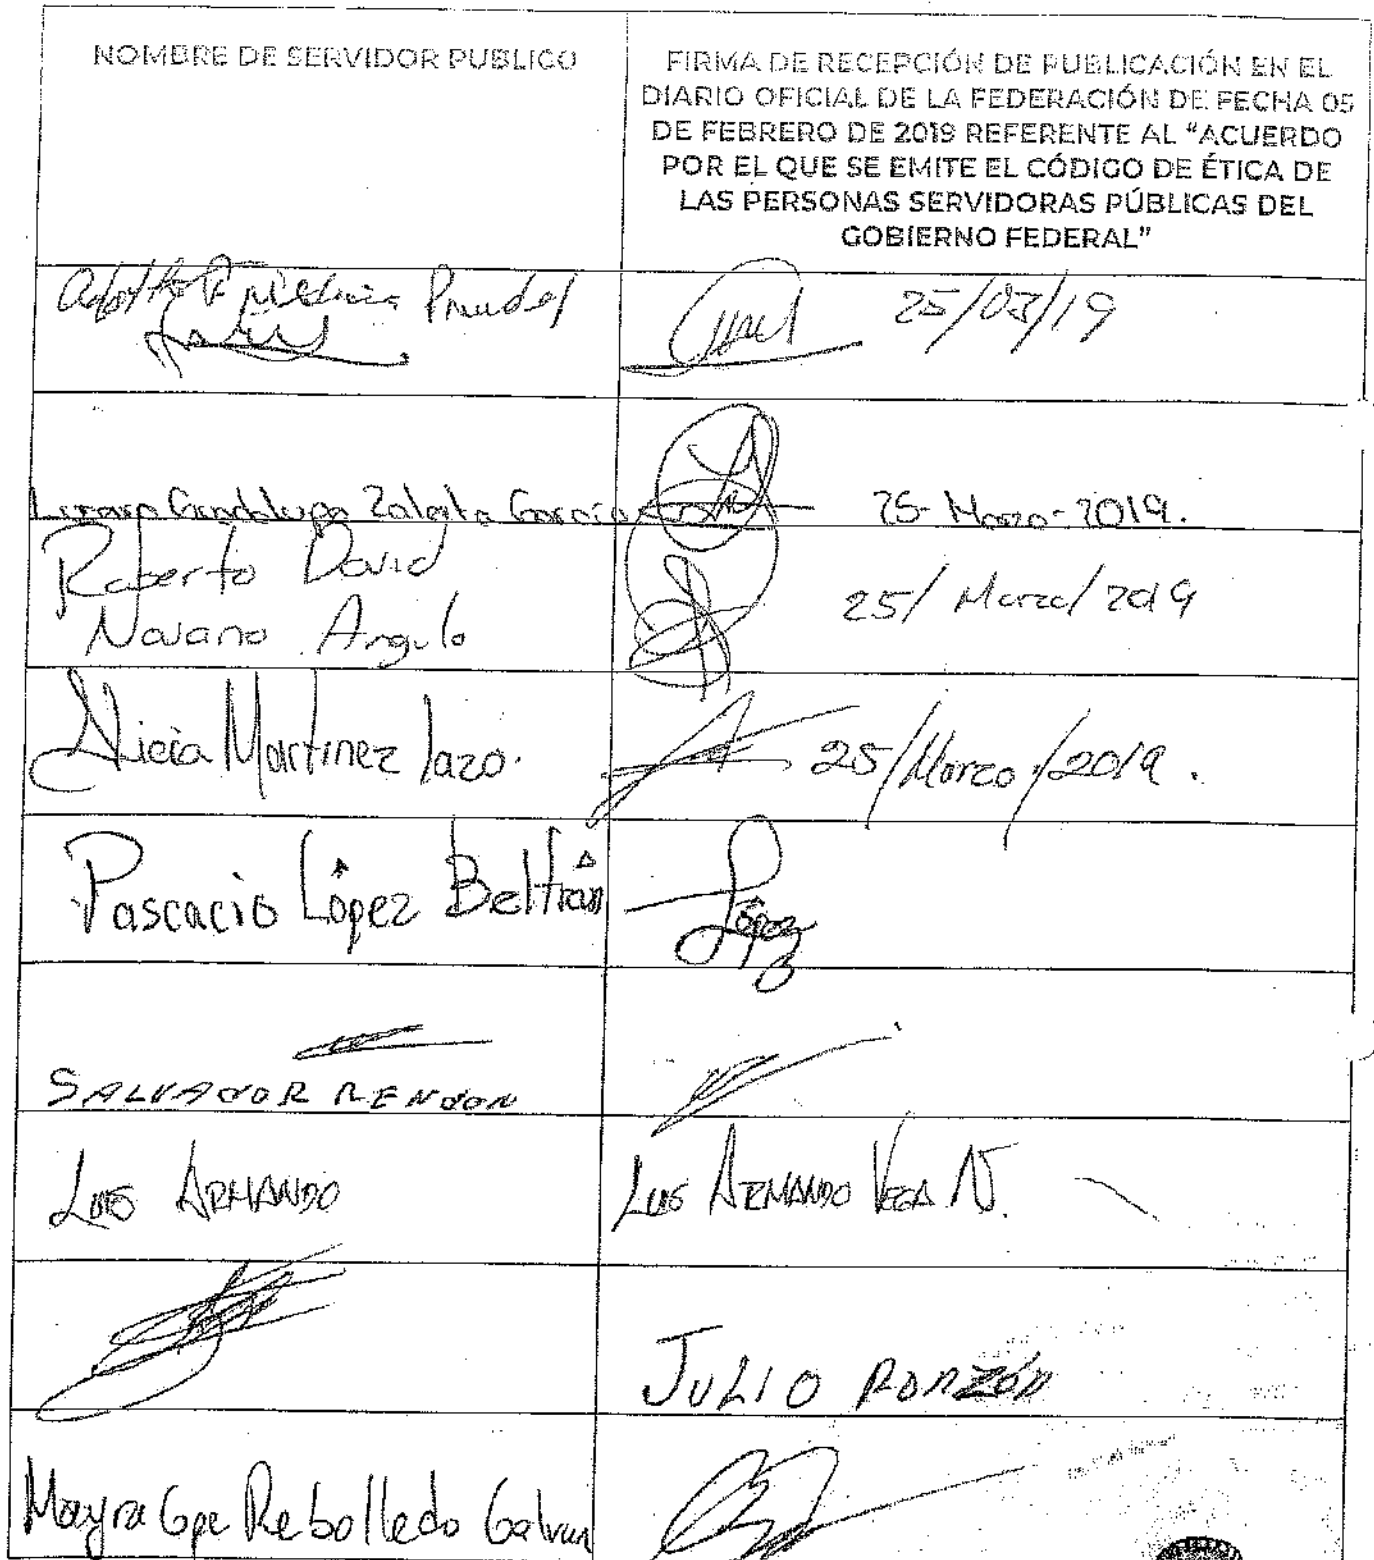 NOMBRE DE SERVIDOR PUBLICO
FIRMA DE RECEPCIÓN DE PUBLICACIÓN EN EL
DIARIO OFICIAL DE LA FEDERACIÓN DE FECHA 05
DE FEBRERO DE 2019 REFERENTE AL "ACUERDO
POR EL QUE SE EMITE EL CÓDIGO DE ÉTICA DE
LAS PERSONAS SERVIDORAS PÚBLICAS DEL
GOBIERNO FEDERAL"
25/03/19
Guadalupe Zaleta García
25-Marzo-2019.
Roberto David
Navano Angulo
25/Marzo/2019
Alicia Martinez lazo.
25/Marzo/2019.
Pascacio López Beltrán
López
SALVADOR RENDON
LUIS ARMANDO
LUIS ARMANDO VEGA N.
JULIO RONZÓN
Mayra Gpe Rebolledo Galvan